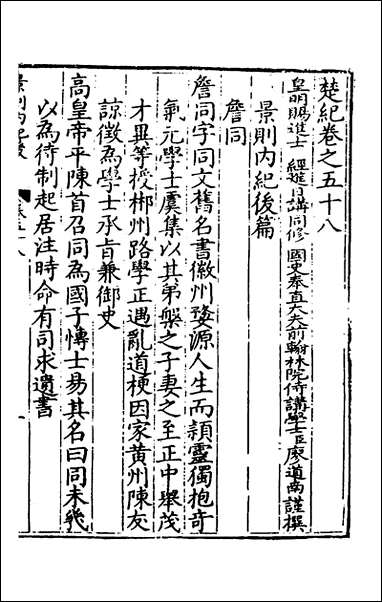 楚紀卷之五十八
皇明賜進士 經進日講同修 國史奉直大夫前翰林院侍講學士臣廖道南謹撰
景則內紀後篇
詹同
詹同字同文舊名書徽州婺源人生而頴靈獨抱奇
氣元學士虞集以其弟槃之子妻之至正中舉茂
才異等授郴州路學正遇亂道梗因家黃州陳友
諒徵為學士承旨兼御史
高皇帝平陳首召同為國子博士易其名曰同未幾
以為待制起居注時命有司求遺書